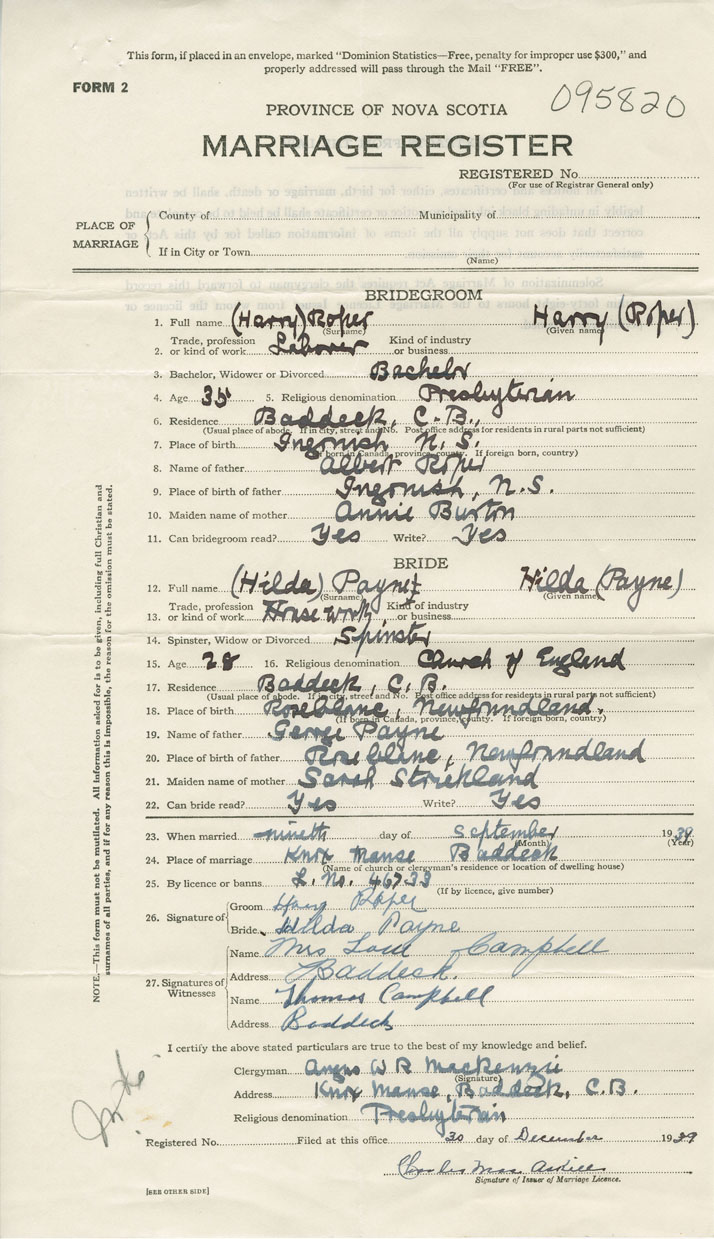 This form, if placed in an envelope, marked "Dominion Statistics—Free, penalty for improper use $300," and
properly addressed will pass through the Mail "FREE".
FORM 2
095820
PROVINCE OF NOVA SCOTIA
MARRIAGE REGISTER
REGISTERED No.
(For use of Registrar General only)
PLACE OF MARRIAGE
County of Municipality of
If in City or Town
(Name)
BRIDEGROOM
1. Full name (Harry) Roper Harry (Roper)
(Surname) (Given name)
2. Trade, profession or kind of work Laborer Kind of industry or business
3. Bachelor, Widower or Divorced Bachelor
4. Age 35 5. Religious denomination Presbyterian
6. Residence Baddeck, C.B.
(Usual place of abode. If in city, street and No. Post office address for residents in rural parts not sufficient)
7. Place of birth Ingonish N.S.
(If born in Canada, province, county. If foreign born, country)
8. Name of father Albert Roper
9. Place of birth of father Ingonish, N.S.
10. Maiden name of mother Annie Burton
11. Can bridegroom read? Yes Write? Yes
BRIDE
12. Full name (Hilda) Payne Hilda (Payne)
(Surname) (Given name)
13. Trade, profession or kind of work House work Kind of industry or business
14. Spinster, Widow or Divorced Spinster
15. Age 28 16. Religious denomination Church of England
17. Residence Baddeck, C.B.
(Usual place of abode. If in city, street and No. Post office address for residents in rural parts not sufficient)
18. Place of birth Roseblanc, Newfoundland.
(If born in Canada, province, county. If foreign born, country)
19. Name of father George Payne
20. Place of birth of father Roseblanc, Newfoundland
21. Maiden name of mother Sarah Strickland
22. Can bride read? Yes Write? Yes
23. When married ninth day of September 1939
(Month) (Year)
24. Place of marriage Knox Manse Baddeck
(Name of church or clergyman's residence or location of dwelling house)
25. By licence or banns L. No. 46733
(If by licence, give number)
26. Signature of
Groom Harry Roper
Bride Hilda Payne
27. Signatures of Witnesses
Name Mrs Campbell
Address Baddeck.
Name Thomas Campbell
Address Baddeck
I certify the above stated particulars are true to the best of my knowledge and belief.
Clergyman Angus W R MacKenzie
(Signature)
Address Knox Manse, Baddeck, C.B.
Religious denomination Presbyterian
Registered No. Filed at this office 30 day of December 1939
Charles
Signature of Issuer of Marriage Licence.
[SEE OTHER SIDE]
NOTE.—This form must not be mutilated. All Information asked for is to be given, including full Christian and
surnames of all parties, and if for any reason this is impossible, the reason for the omission must be stated.